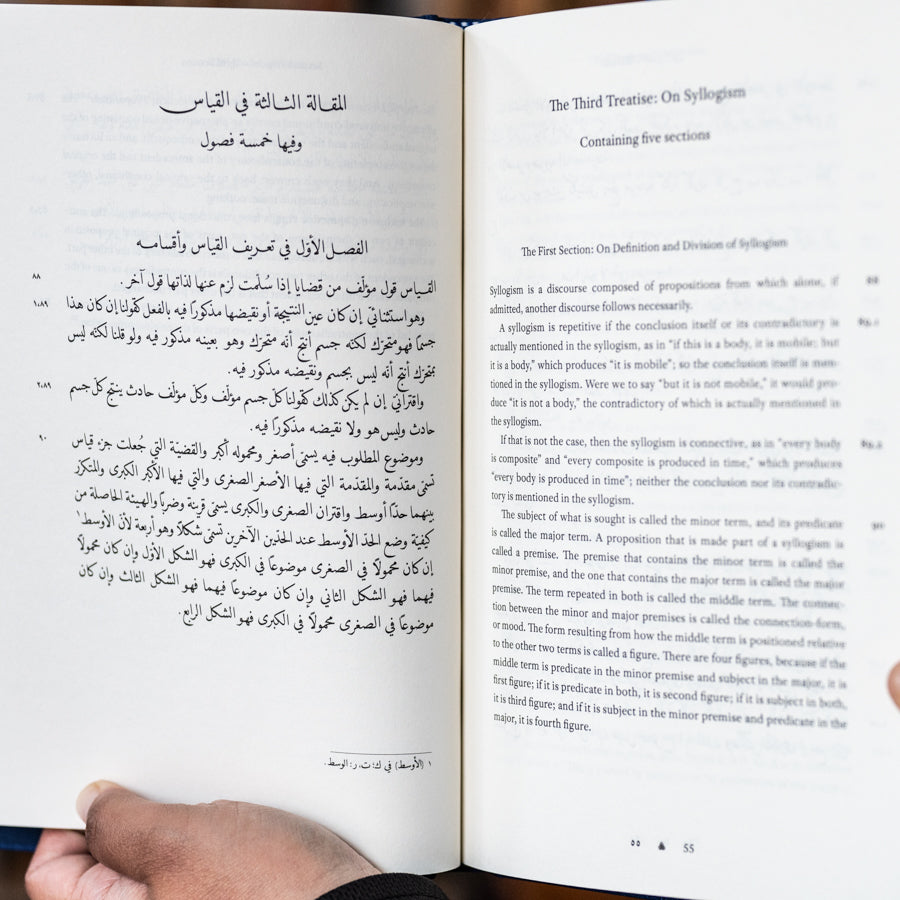 المقالة الثالثة في القياس
وفيها خمسة فصول
الفصل الأوّل في تعريف القياس وأقسامه
٨٨
القياس قول مؤلّف من قضايا إذا سُلّمت لزم عنها لذاتها قول آخر.
١،٨٩
وهو استثنائيّ إن كان عين النتيجة أو نقيضها مذكورًا فيه بالفعل كقولنا إن كان هذا
جسمًا فهو متحرّك لكنّه جسم أنتج أنّه متحرّك وهو بعينه مذكور فيه ولو قلنا لكنّه ليس
بمتحرّك أنتج أنّه ليس بجسم ونقيضه مذكور فيه.
٢،٨٩
واقترانيّ إن لم يكن كذلك كقولنا كلّ جسم مؤلّف وكلّ مؤلّف حادث ينتج كلّ جسم
حادث وليس هو ولا نقيضه مذكورًا فيه.
٩٠
وموضوع المطلوب فيه يسمّى أصغر ومحموله أكبر والقضيّة التي جُعلت جزء قياس
تسمّى مقدّمة والمقدّمة التي فيها الأصغر الصغرى والتي فيها الأكبر الكبرى والمتكرّر
بينهما حدًّا أوسط واقتران الصغرى والكبرى يسمّى قرينة وضربًا والهيئة الحاصلة من
كيفيّة وضع الحدّ الأوسط عند الحدّين الآخرين تسمّى شكلًا وهو أربعة لأنّ الأوسط١
إن كان محمولًا في الصغرى موضوعًا في الكبرى فهو الشكل الأوّل وإن كان محمولًا
فيهما فهو الشكل الثاني وإن كان موضوعًا فيهما فهو الشكل الثالث وإن كان
موضوعًا في الصغرى محمولًا في الكبرى فهو الشكل الرابع.
١ (الأوسط) في ك؛ ت، ر: الوسط.
The Third Treatise: On Syllogism
Containing five sections
The First Section: On Definition and Division of Syllogism
Syllogism is a discourse composed of propositions from which alone, if
admitted, another discourse follows necessarily.
A syllogism is repetitive if the conclusion itself or its contradictory is
actually mentioned in the syllogism, as in "if this is a body, it is mobile; but
it is a body," which produces "it is mobile"; so the conclusion itself is men-
tioned in the syllogism. Were we to say "but it is not mobile," it would pro-
duce "it is not a body," the contradictory of which is actually mentioned in
the syllogism.
If that is not the case, then the syllogism is connective, as in "every body
is composite" and "every composite is produced in time," which produces
"every body is produced in time"; neither the conclusion nor its contradic-
tory is mentioned in the syllogism.
The subject of what is sought is called the minor term, and its predicate
is called the major term. A proposition that is made part of a syllogism is
called a premise. The premise that contains the minor term is called the
minor premise, and the one that contains the major term is called the major
premise. The term repeated in both is called the middle term. The connec-
tion between the minor and major premises is called the connection-form,
or mood. The form resulting from how the middle term is positioned relative
to the other two terms is called a figure. There are four figures, because if the
middle term is predicate in the minor premise and subject in the major, it is
first figure; if it is predicate in both, it is second figure; if it is subject in both,
it is third figure; and if it is subject in the minor premise and predicate in the
major, it is fourth figure.
٥٥ 55